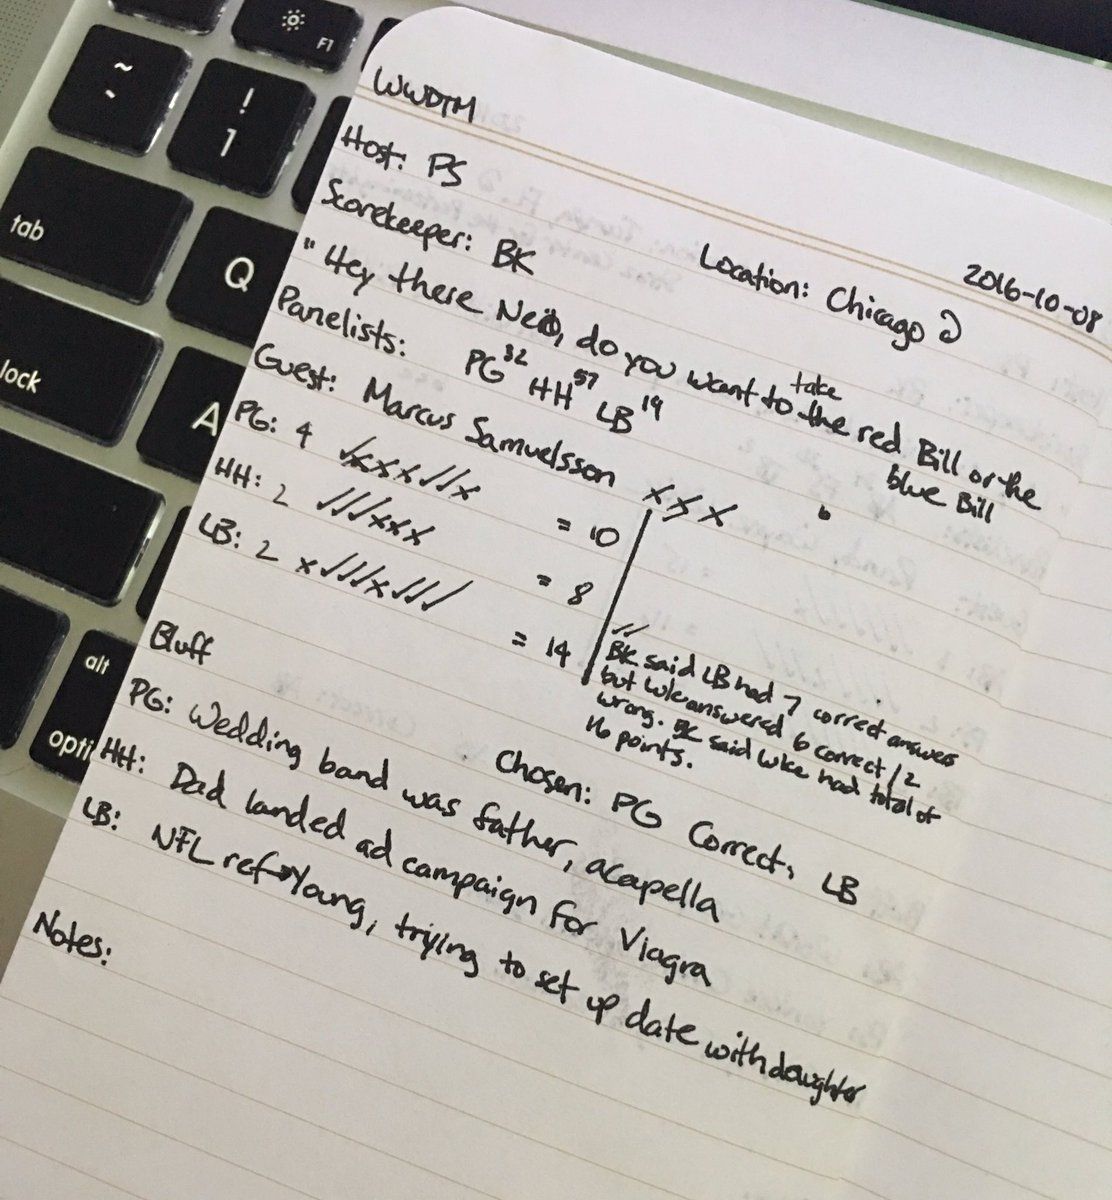 F1
~
`
!
1
tab
Q
lock
A
alt
opti
WWDTM
2016-10-08
Host: PS
Location: Chicago
Scorekeeper: BK
"Hey there Neo, do you want to take the red Bill or the blue Bill
Panelists: PG 32 HH 57 LB 19
Guest: Marcus Samuelsson XXX
PG: 4 ✓xxx✓✓x = 10
HH: 2 ✓✓✓xxx = 8
LB: 2 x✓✓✓x✓✓✓ = 14
BK said LB had 7 correct answers
but Luke answered 6 correct/2
wrong. BK said Luke had total of
16 points.
Bluff
Chosen: PG Correct: LB
PG: Wedding band was father, acapella
HH: Dad landed ad campaign for Viagra
LB: NFL ref → Young, trying to set up date with daughter
Notes: